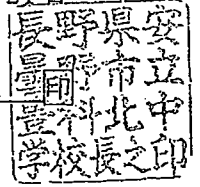 長野県安
曇野市立
豊科北中
学校長之印
印